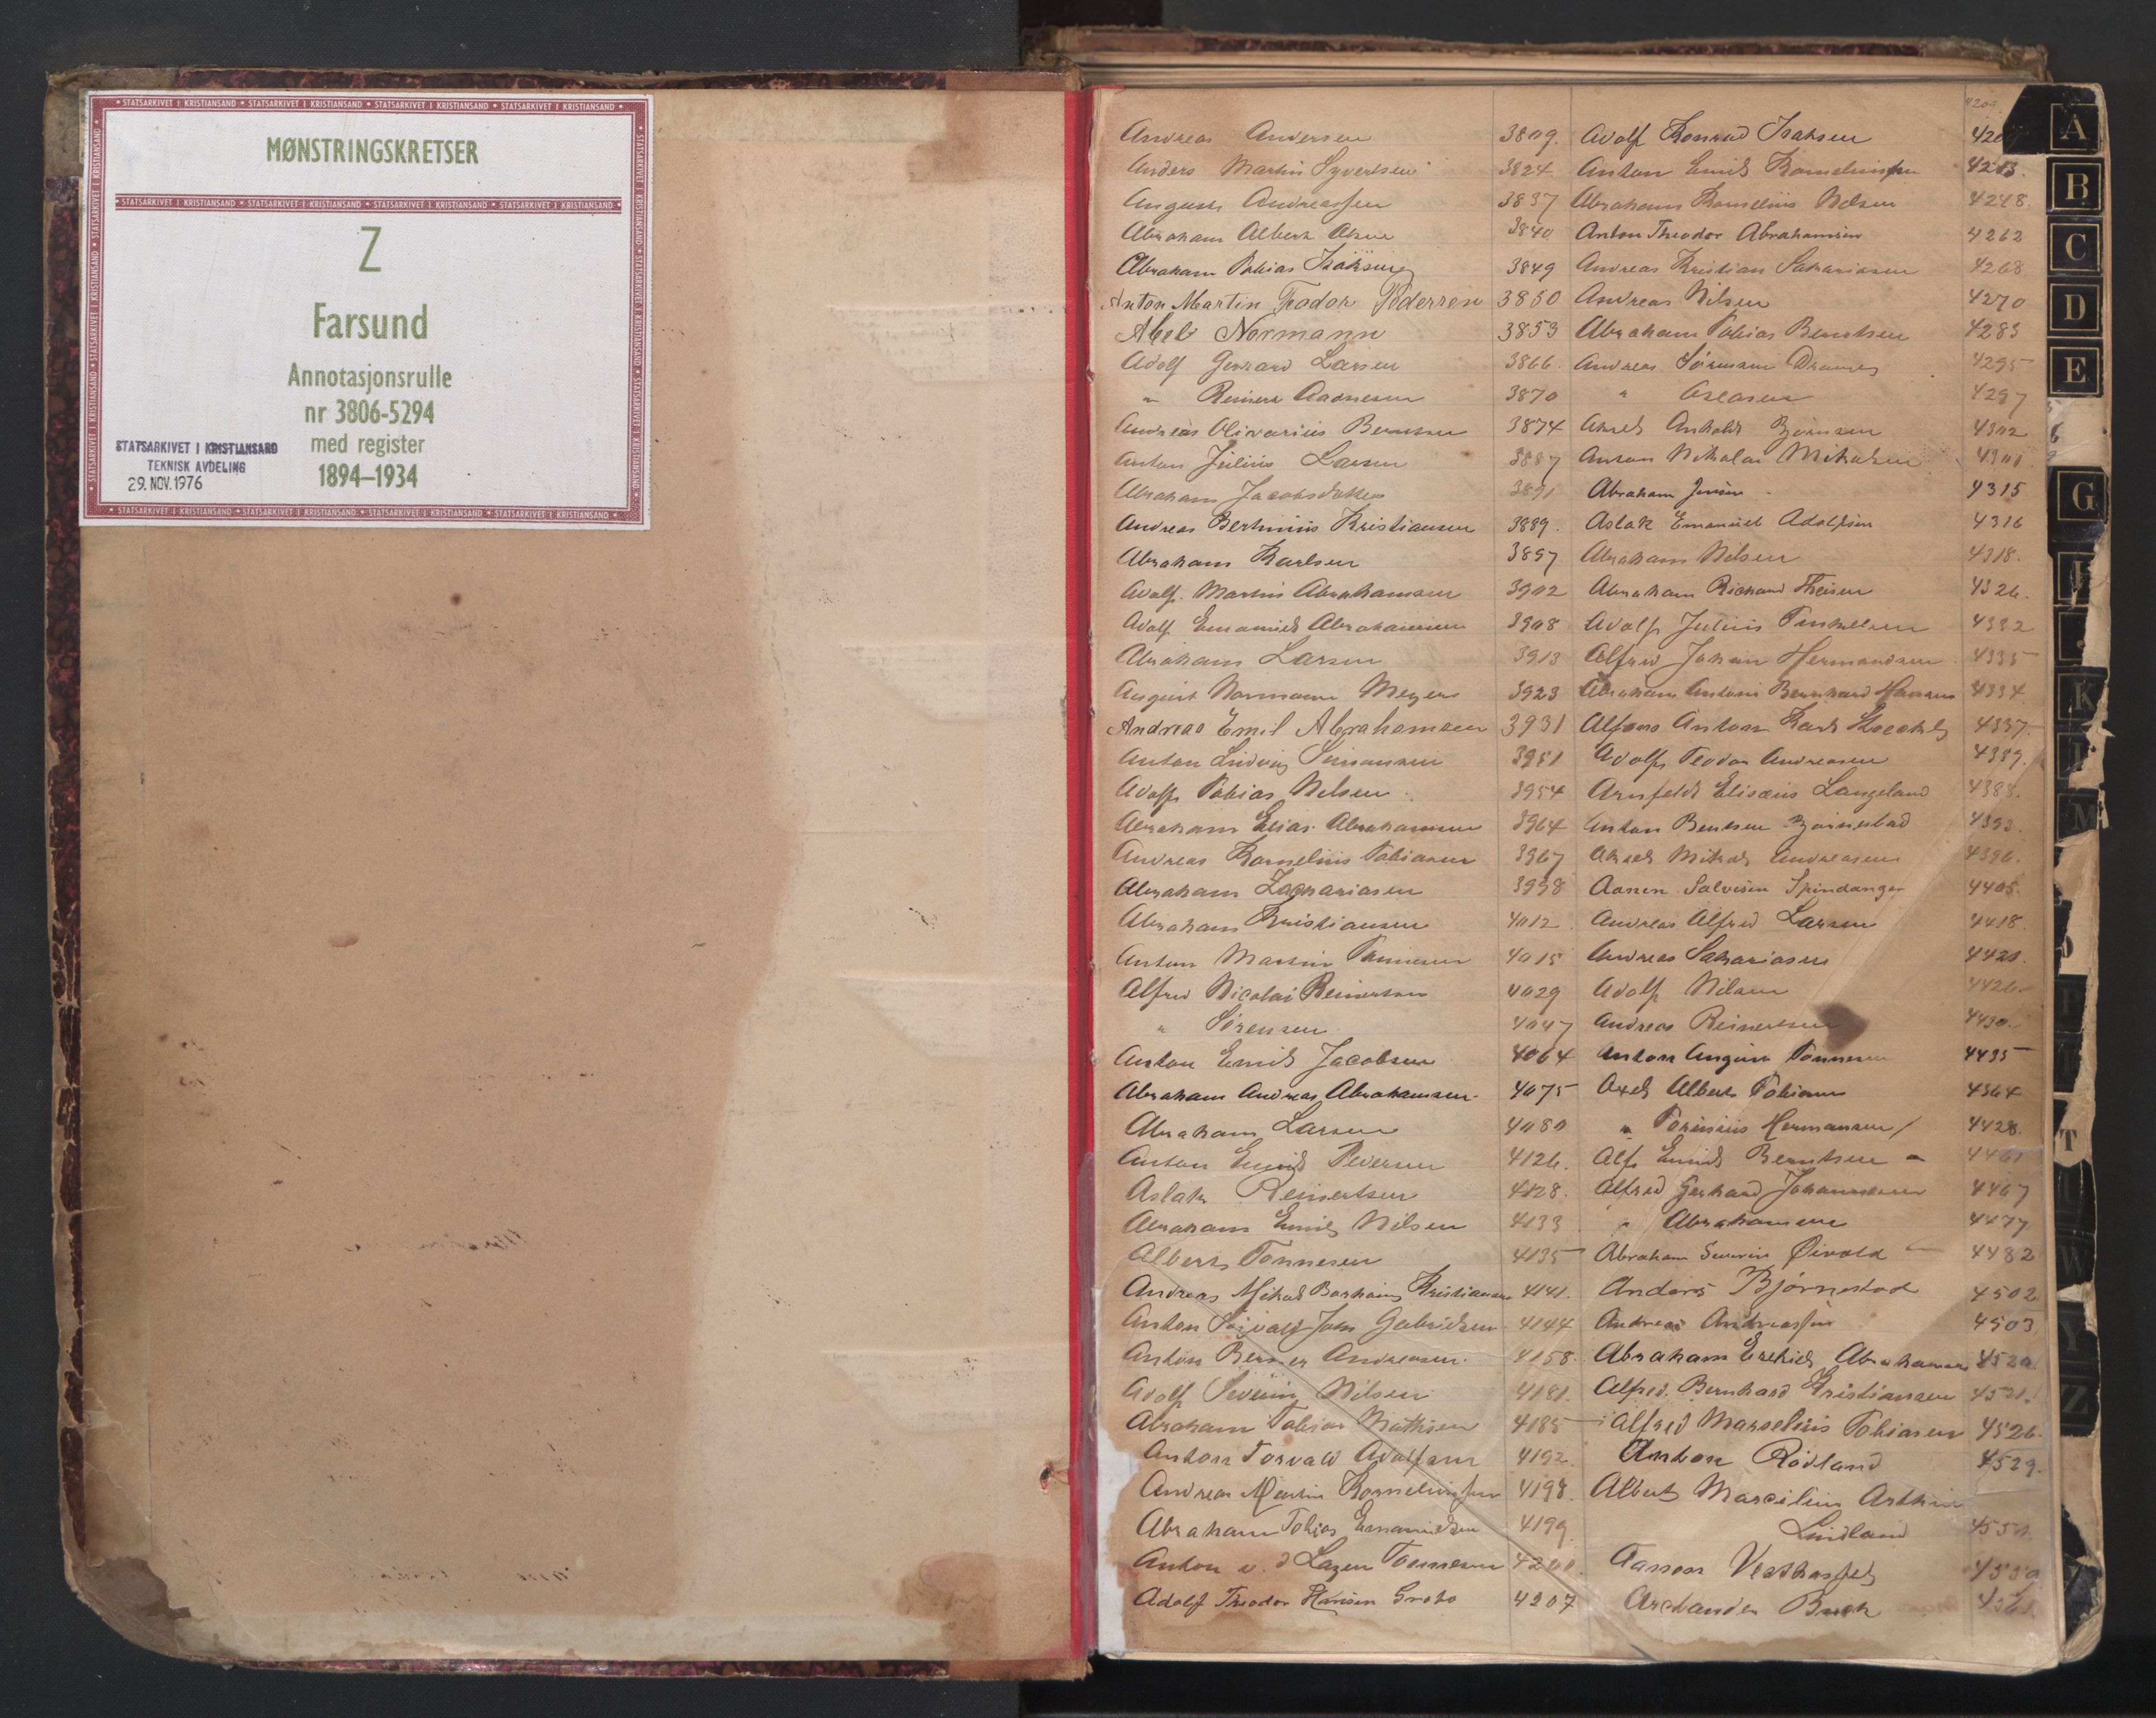 MØNSTRINGSKRETSER
Z
Farsund
Annotasjonsrulle
nr 3806-5294
med register
1894–1934
STATSARKIVET I KRISTIANSAND
TEKNISK AVDELING
29. NOV. 1976
Andreas Andersen 3809.
Anders Martin Syvertsen 3824
August Andreassen 3837
Abraham Albert Olsen 3840
Abraham Tobias Isaksen 3849
Anton Martin Teodor Pedersen 3850
Abel Normann 3853
Adolf Gerhard Larsen 3866.
" Reinert Aadnesen 3870
Andreas Olivarius Berntsen 3874
Anton Julius Larsen 3887
Abraham Jacobsen 3891
Andreas Bertinius Kristiansen 3889.
Abraham Karlsen 3897
Adolf Martin Abrahamsen 3902
Adolf Emanuel Abrahamsen 3908
Abraham Larsen 3913
August Normann Meyer 3923
Andreas Emil Abrahamsen 3931
Anton Ludvig Simonsen 3951
Adolf Tobias Nilsen 3954
Abraham Elias Abrahamsen 3964
Andreas Kornelius Tobiasen 3967
Abraham Zachariasen 3998
Abraham Kristiansen 4012
Anton Martin Tønnesen 4015
Alfred Nicolai Reinertsen 4029
" Sörensen 4047
Anton Emil Jacobsen 4064
Abraham Andreas Abrahamsen 4075
Abraham Larsen 4080
Anton Emil Pedersen 4126.
Aslak Reinertsen 4128.
Abraham Emil Nilsen 4133
Albert Tønnesen 4135
Andreas Mikal Kristiansen 4141.
Anton Sigvald John Gabrielsen 4144
Anton Berner Andreasen 4158.
Adolf Severin Nilsen 4181.
Abraham Tobias Mathisen 4185
Anton Torvald Adolfsen 4192
Andreas Martin Korneliussen 4198.
Abraham Tobias Emanuelsen 4199
Anton v. d Lagen Tønnesen 4201.
Adolf Theodor Hansen 4207
Adolf Konrad Isaksen
Anton Emil Korneliussen 4213.
Abraham Kornelius Nilsen 4248.
Anton Theodor Abrahamsen 4262
Andreas Kristian Sakariasen 4268
Andreas Nilsen 4270
Abraham Tobias Berntsen 4283
Andreas Sørensen 4295
" Aslaksen 4297
Aksel Anholdt Bjørnsen 4302
Anton Nikolai Mikalsen 4301
Abraham Jensen 4315
Aslak Emanuel Adolfsen 4316
Abraham Nilsen 4318.
Abraham Rickard Theisen 4326.
Adolf Julius 4332
Alfred Johan Hermandsen 4335
Abraham Antoni Bernhard Hansen 4334
Alfons Anton Karl 4337.
Adolf Teodor Andreasen 4359.
Arnfeldt Elisæus Langeland 4388.
Anton Bentsen Bjørnestad 4393.
Aksel Mikal Andreasen 4396.
Aanen Salvesen Spindanger 4405.
Andreas Alfred Larsen 4418.
Andreas Sakariasen 4421.
Adolf Nilsen 4426.
Andreas Reinertsen 4430.
Anton August Tønnesen 4435
Axel Albert Tobiasen 4364
" Hermansen 4428.
Alf Emil Berntsen 4461
Alfred Gerhard Johannesen 4467
" Abrahamsen 4477
Abraham Severin Øivold 4482
Anders Bjørnestad 4502
Andreas Andreassen 4503
Abraham Esekiel Abrahamsen 4520
Alfred Bernhard Kristiansen 4521.
Alfred Marselius Tobiasen 4526.
Anton Rødland 4529.
Albert Marcelius Arthur
Lindland
Aanon
Buch
A
B
C
D
E
G
K
M
T
W
Y
Z